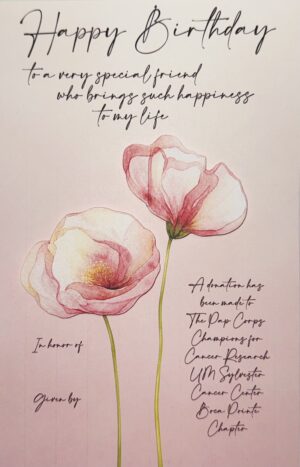 Happy Birthday
to a very special friend
who brings such happiness
to my life
A donation has
been made to
The Pap Corps
Champions for
Cancer Research
UM Sylvester
Cancer Center
Boca Pointe
Chapter
In honor of
Given by